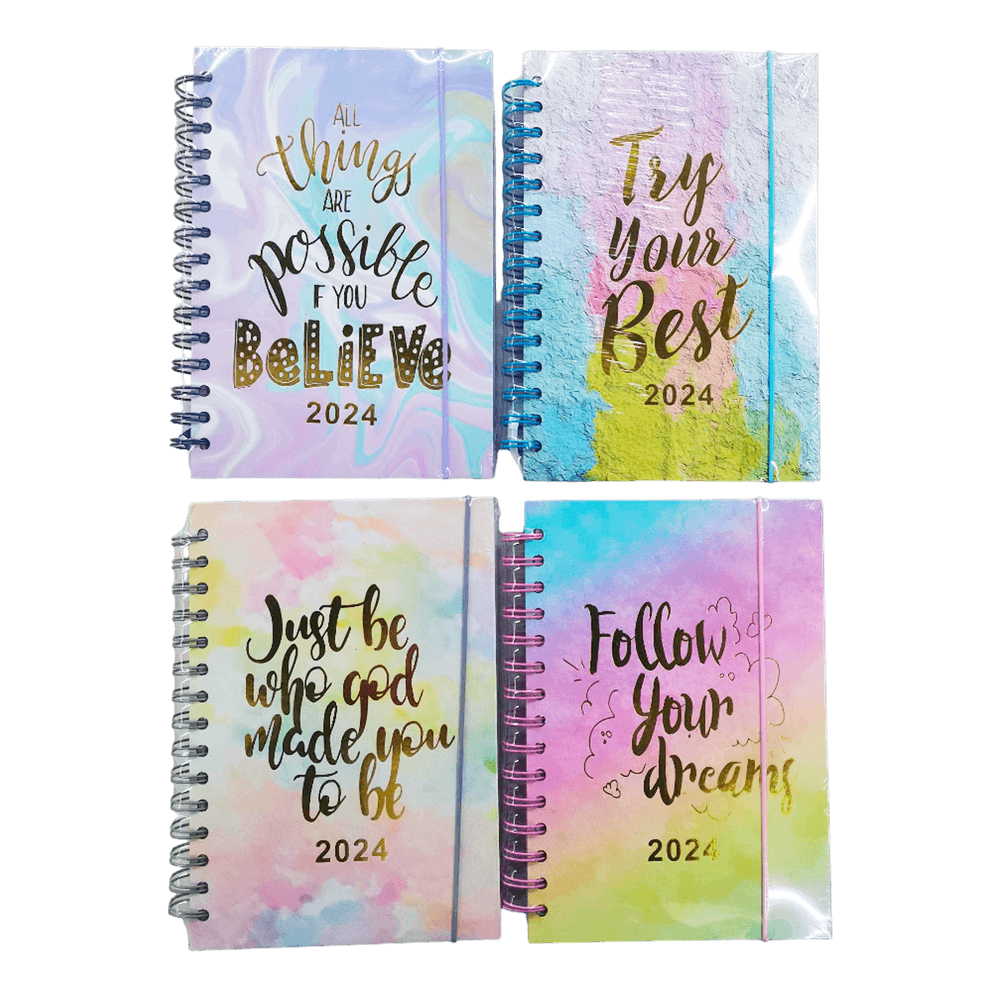 ALL
things
ARE
possible
IF YOU
BELiEVe
2024
Try
Your
Best
2024
Just be
who god
made you
to be
2024
Follow
Your
dreams
2024